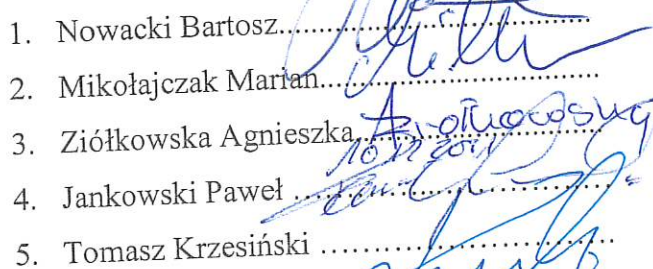 1. Nowacki Bartosz..............................
2. Mikołajczak Marian..............................
3. Ziółkowska Agnieszka A Ziółkowska
4. Jankowski Paweł ..............................
5. Tomasz Krzesiński ..............................